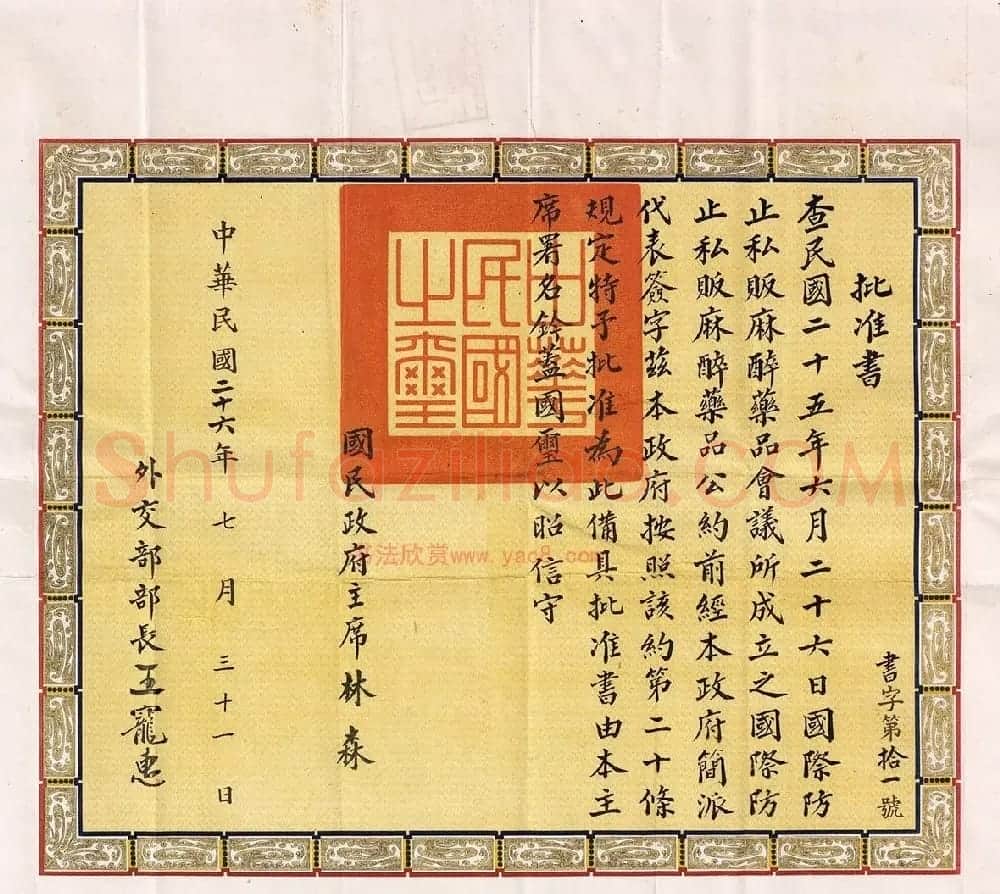 批准書
書字第拾一號
查民國二十五年六月二十六日國際防
止私販麻醉藥品會議所成立之國際防
止私販麻醉藥品公約前經本政府簡派
代表簽字茲本政府按照該約第二十條
規定特予批准為此備具批准書由本主
席署名鈐蓋國璽以昭信守
中華民國之璽
國民政府主席林森
中華民國二十六年七月三十一日
外交部部長王寵惠
Shufaziliao.COM
書法欣赏www.yac8.com